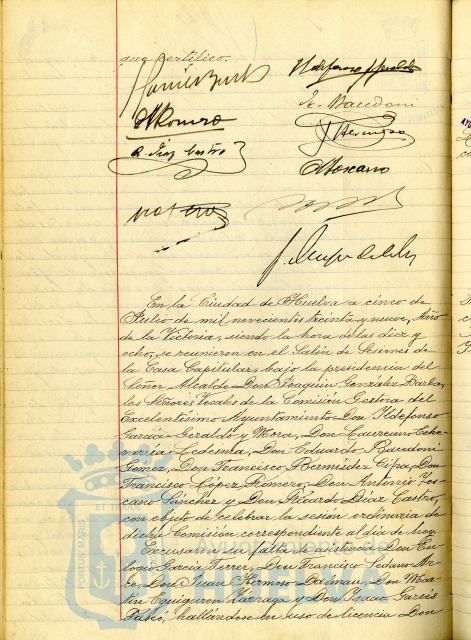 que certifico.
A. Romero
E. Bacedoni
R. Díaz Castro
Toscano
En la Ciudad de Huelva a cinco de
Julio de mil novecientos treinta y nueve, Año
de la Victoria, siendo la hora de las diez y
ocho, se reunieron en el Salón de Sesiones de
la Casa Capitular, bajo la presidencia del
Señor Alcalde Don Joaquín González Barba,
los Señores Vocales de la Comisión Gestora del
Excelentísimo Ayuntamiento Don Ildefonso
García Geraldo y Mora, Don Laureano Eche-
varría Ledesma, Don Eduardo Bacedoni
Gómez, Don Francisco Bermúdez Cupa, Don
Francisco López Romero, Don Antonio Tos-
cano Sánchez y Don Ricardo Díaz Castro,
con objeto de celebrar la sesión ordinaria de
dicha Comisión correspondiente al día de hoy.
Excusaron su falta de asistencia Don Eu-
logio García Ferrer, Don Francisco Sedano Ar-
ce, Don Juan Hermoso Dalmau, Don Mar-
tín Eguiguren Lizaraga y Don Isaac García
hallándose en uso de licencia Don
PORTUS MARIS
ET TERRAE